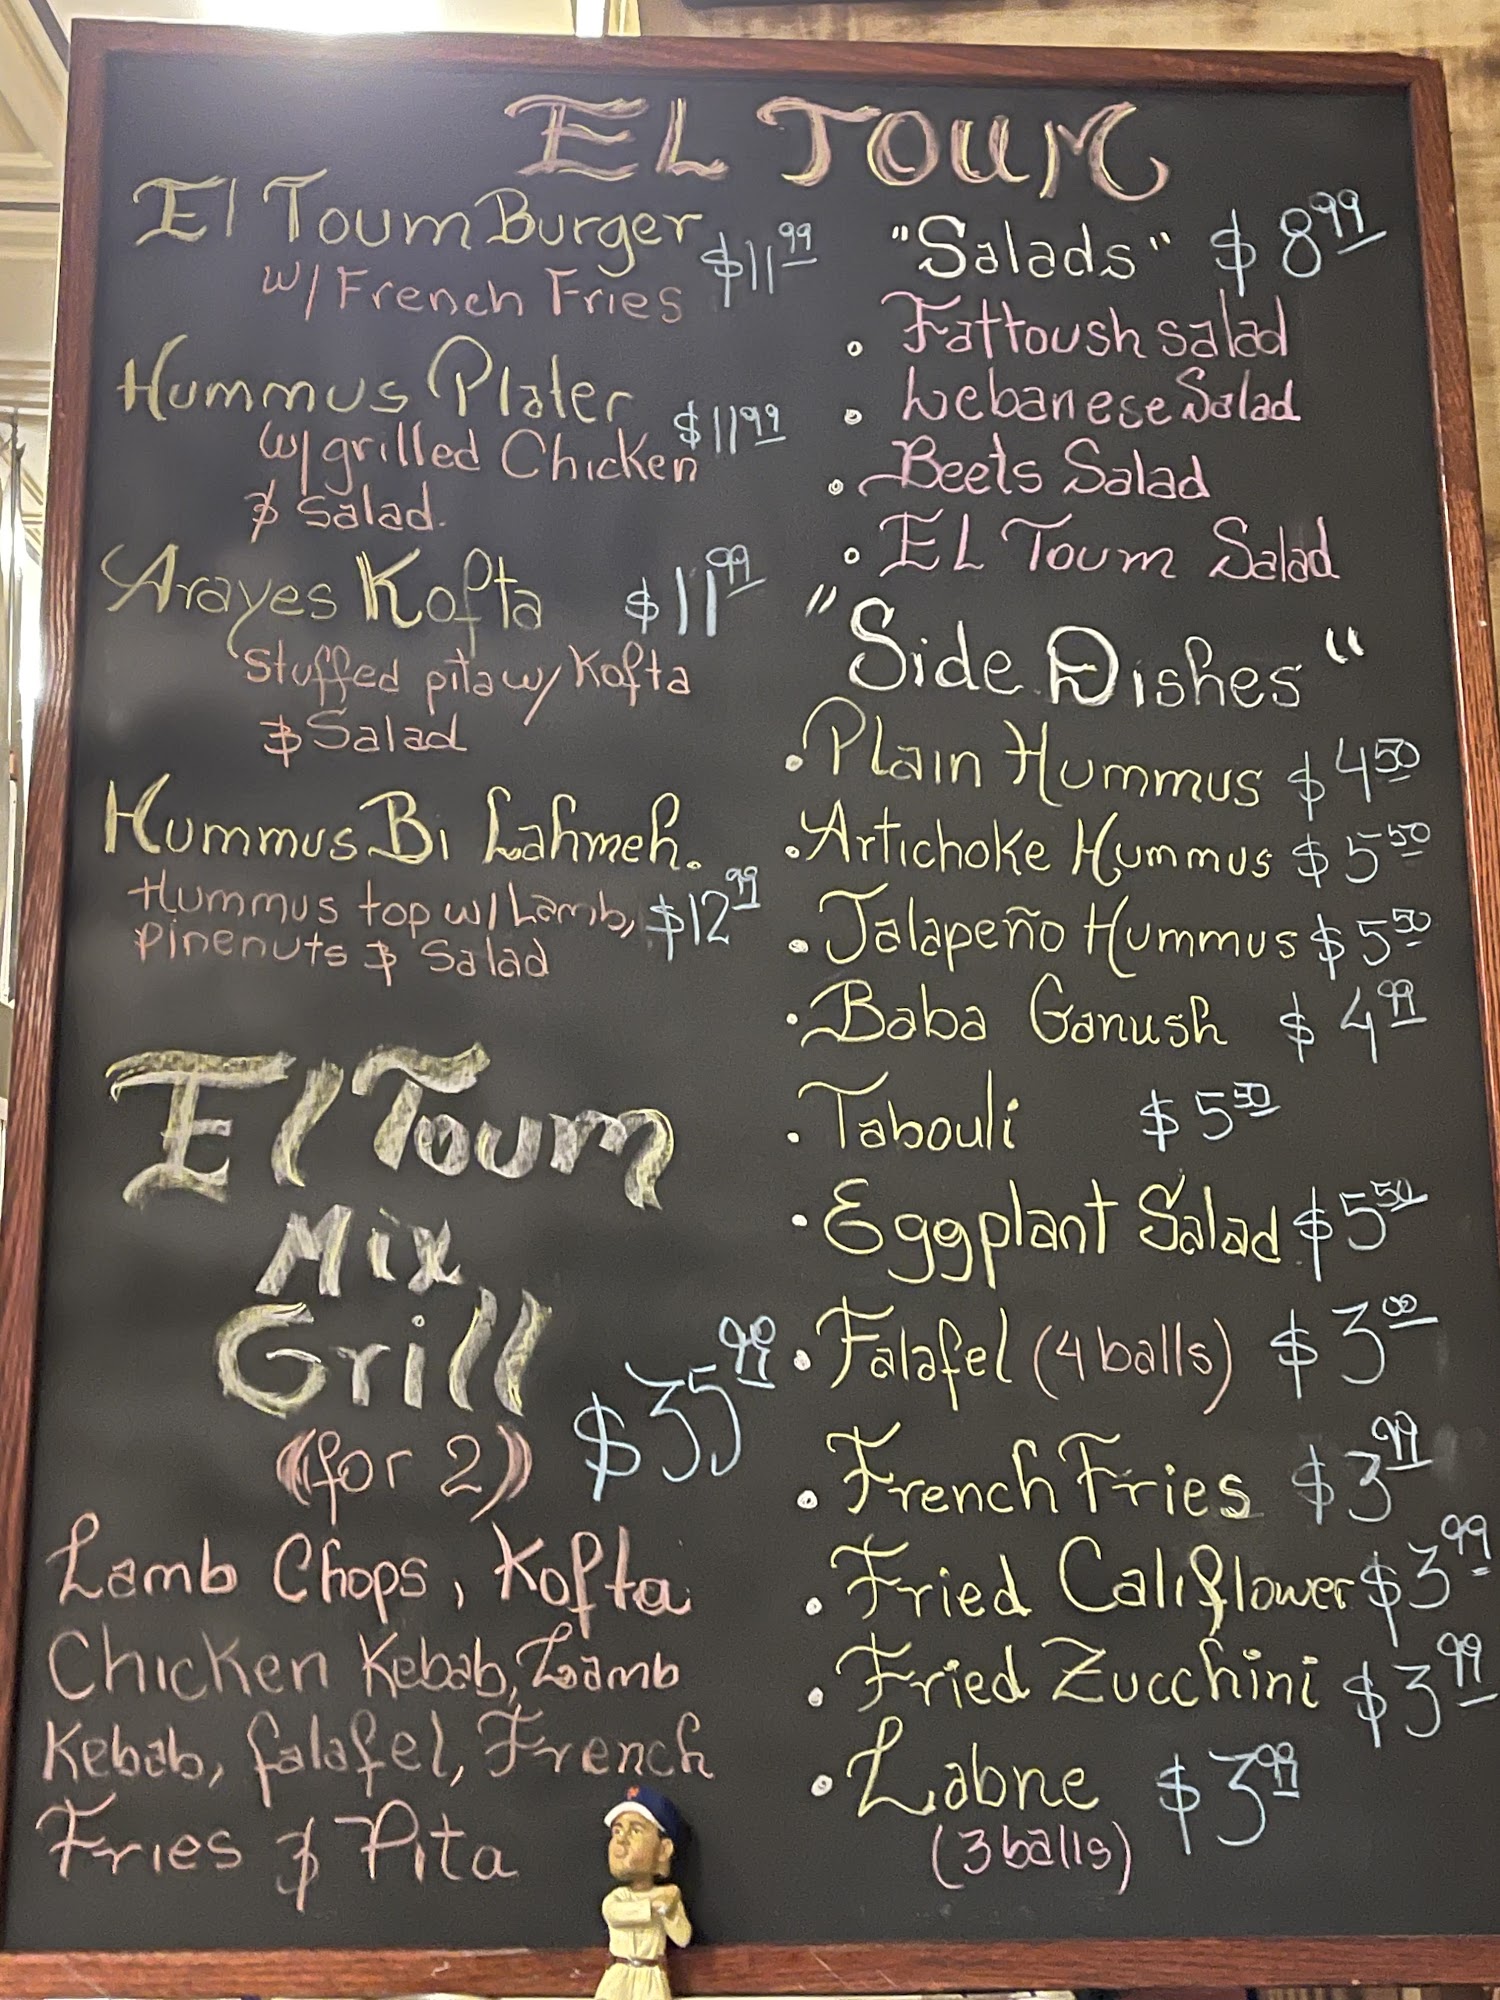 EL TOUM
El Toum Burger $11.99
w/ French Fries
Hummus Plater $11.99
w/ grilled Chicken
& Salad.
Arayes Kofta $11.99
Stuffed pita w/ Kofta
& Salad
Hummus Bi Lahmeh.
Hummus top w/ Lamb, $12.99
pinenuts & Salad
El Toum
Mix
Grill
(for 2) $35.99
Lamb Chops, Kofta
Chicken Kebab, Lamb
Kebab, falafel, French
Fries & Pita
"Salads" $8.99
• Fattoush salad
• Lebanese Salad
• Beets Salad
• EL Toum Salad
"Side Dishes"
• Plain Hummus $4.50
• Artichoke Hummus $5.50
• Jalapeño Hummus $5.50
• Baba Ganush $4.99
• Tabouli $5.50
• Eggplant Salad $5.50
• Falafel (4 balls) $3.00
• French Fries $3.99
• Fried Califlower $3.99
• Fried Zucchini $3.99
• Labne $3.99
(3 balls)